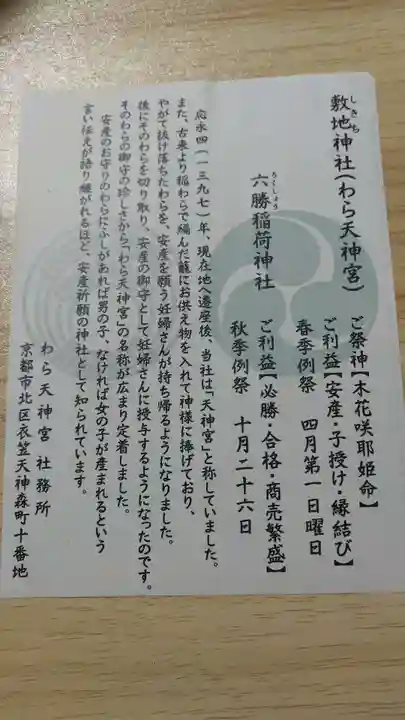 敷地神社(わら天神宮)
しきち
ご祭神【木花咲耶姫命】
ご利益【安産・子授け・縁結び】
春季例祭 四月第一日曜日
六勝稲荷神社
ろくしょう
ご利益【必勝・合格・商売繁盛】
秋季例祭 十月二十六日
応永四(一三九七)年、現在地へ遷座後、当社は「天神宮」と称していました。
また、古来より稲わらで編んだ籠にお供え物を入れて神様に捧げており、
やがて抜け落ちたわらを、安産を願う妊婦さんが持ち帰るようになりました。
後にそのわらを切り取り、安産の御守として妊婦さんに授与するようになったのです。
そのわらの御守の珍しさから「わら天神宮」の名称が広まり定着しました。
安産のお守りのわらにふしがあれば男の子、なければ女の子が産まれるという
言い伝えが語り継がれるほど、安産祈願の神社として知られています。
わら天神宮 社務所
京都市北区衣笠天神森町十番地